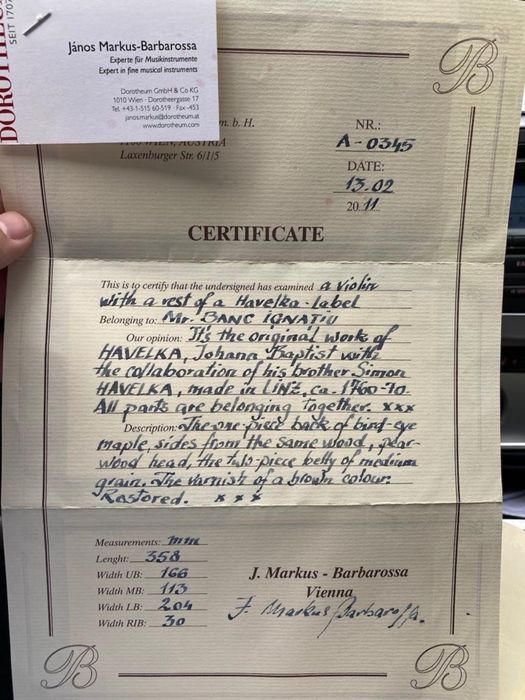 DOROTHEUM
SEIT 1707
János Markus-Barbarossa
Experte für Musikinstrumente
Expert in fine musical instruments
Dorotheum GmbH & Co KG
1010 Wien · Dorotheergasse 17
Tel. +43-1-515 60-519 · Fax -453
janos.markus@dorotheum.at
www.dorotheum.com
m. b. H.
WIEN, AUSTRIA
Laxenburger Str. 6/1/5
NR.:
A-0345
DATE:
13.02
2011
B
CERTIFICATE
This is to certify that the undersigned has examined a violin
with a rest of a Havelka-label
Belonging to: Mr. BANC IGNATIU
Our opinion: It's the original work of
HAVELKA, Johann Baptist with
the collaboration of his brother Simon
HAVELKA, made in LINZ, ca. 1760-70.
All parts are belonging together. xxx
Description: The one-piece back of bird-eye
maple, sides from the same wood, pear-
wood head, the two-piece belly of medium
grain. The varnish of a brown colour.
Restored. x x x
Measurements: mm
Lenght: 358
Width UB: 166
Width MB: 113
Width LB: 204
Width RIB: 30
J. Markus - Barbarossa
Vienna
J. Markus Barbarossa.
B
B